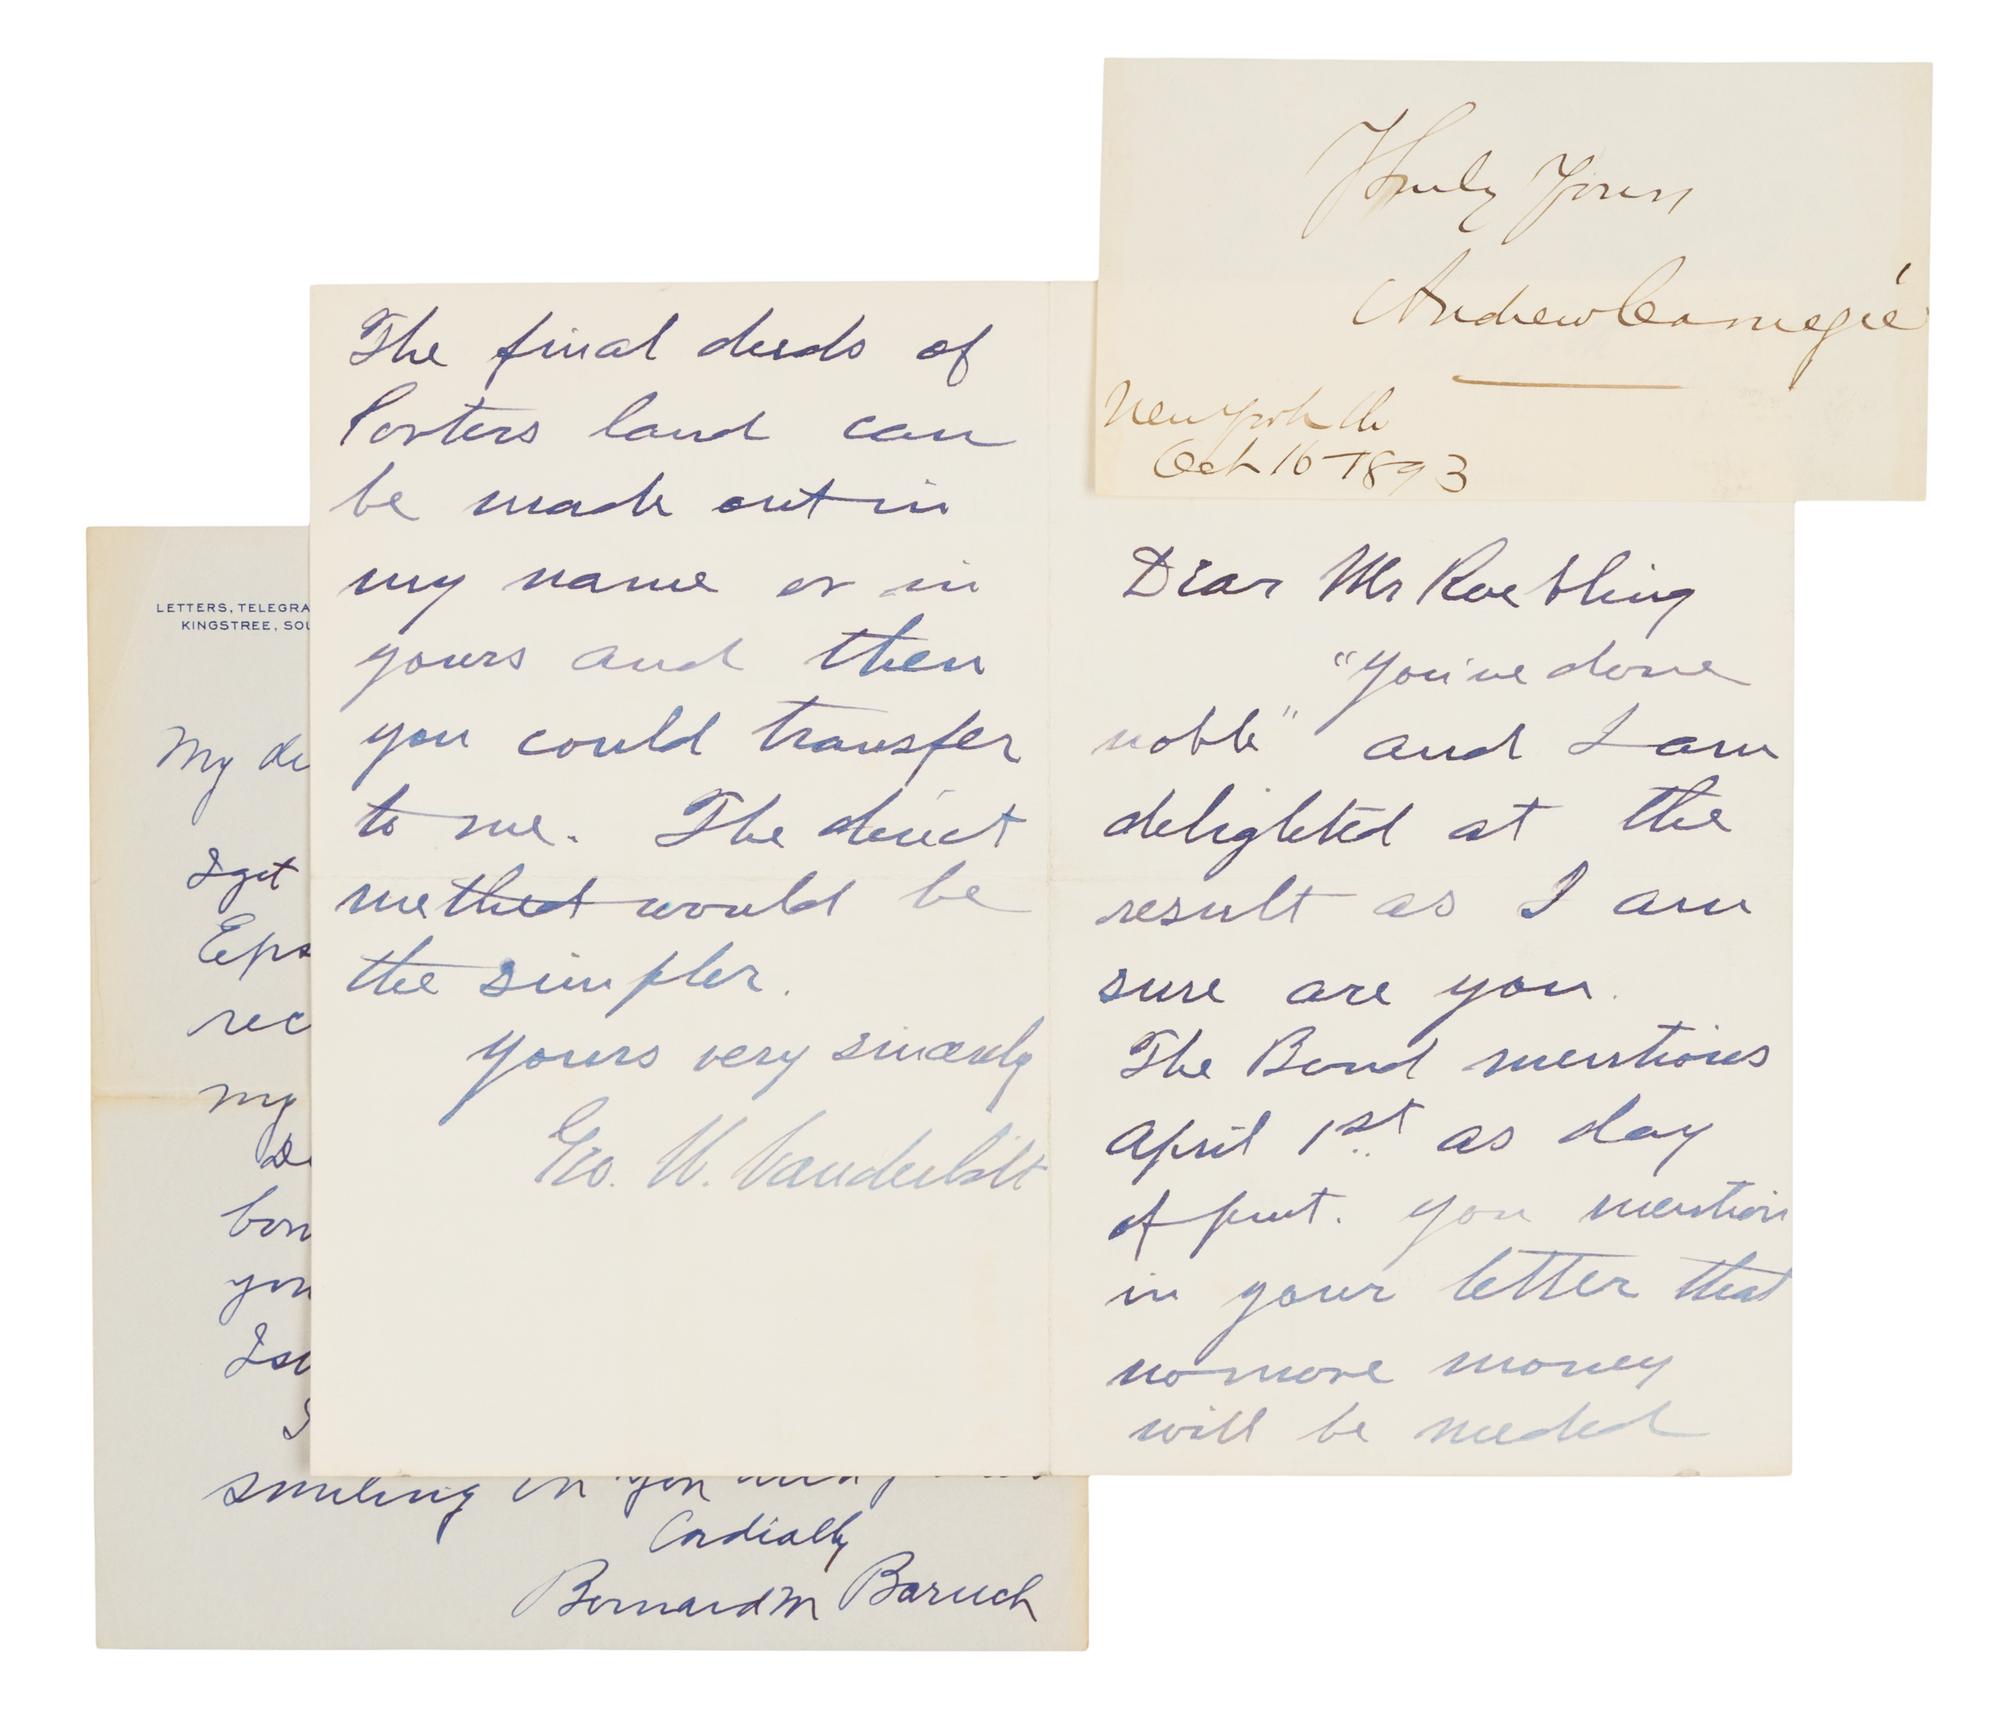 Truly Yours
Andrew Carnegie
New York
Oct 16 1893
Dear Mr Roebling
"You've done
noble" and I am
delighted at the
result as I am
sure are you.
The Bond mentions
April 1st as day
of pmt. you mention
in your letter that
no more money
will be needed
The final deeds of
Porters land can
be made out in
my name or in
yours and then
you could transfer
to me. The direct
method would be
the simpler.
Yours very sincerely
Geo. W. Vanderbilt
LETTERS, TELEGRA
KINGSTREE, SOU
My de
I get
Eps
rec
my
De
bon
you
I
smiling on you and
Cordially
Bernard M Baruch